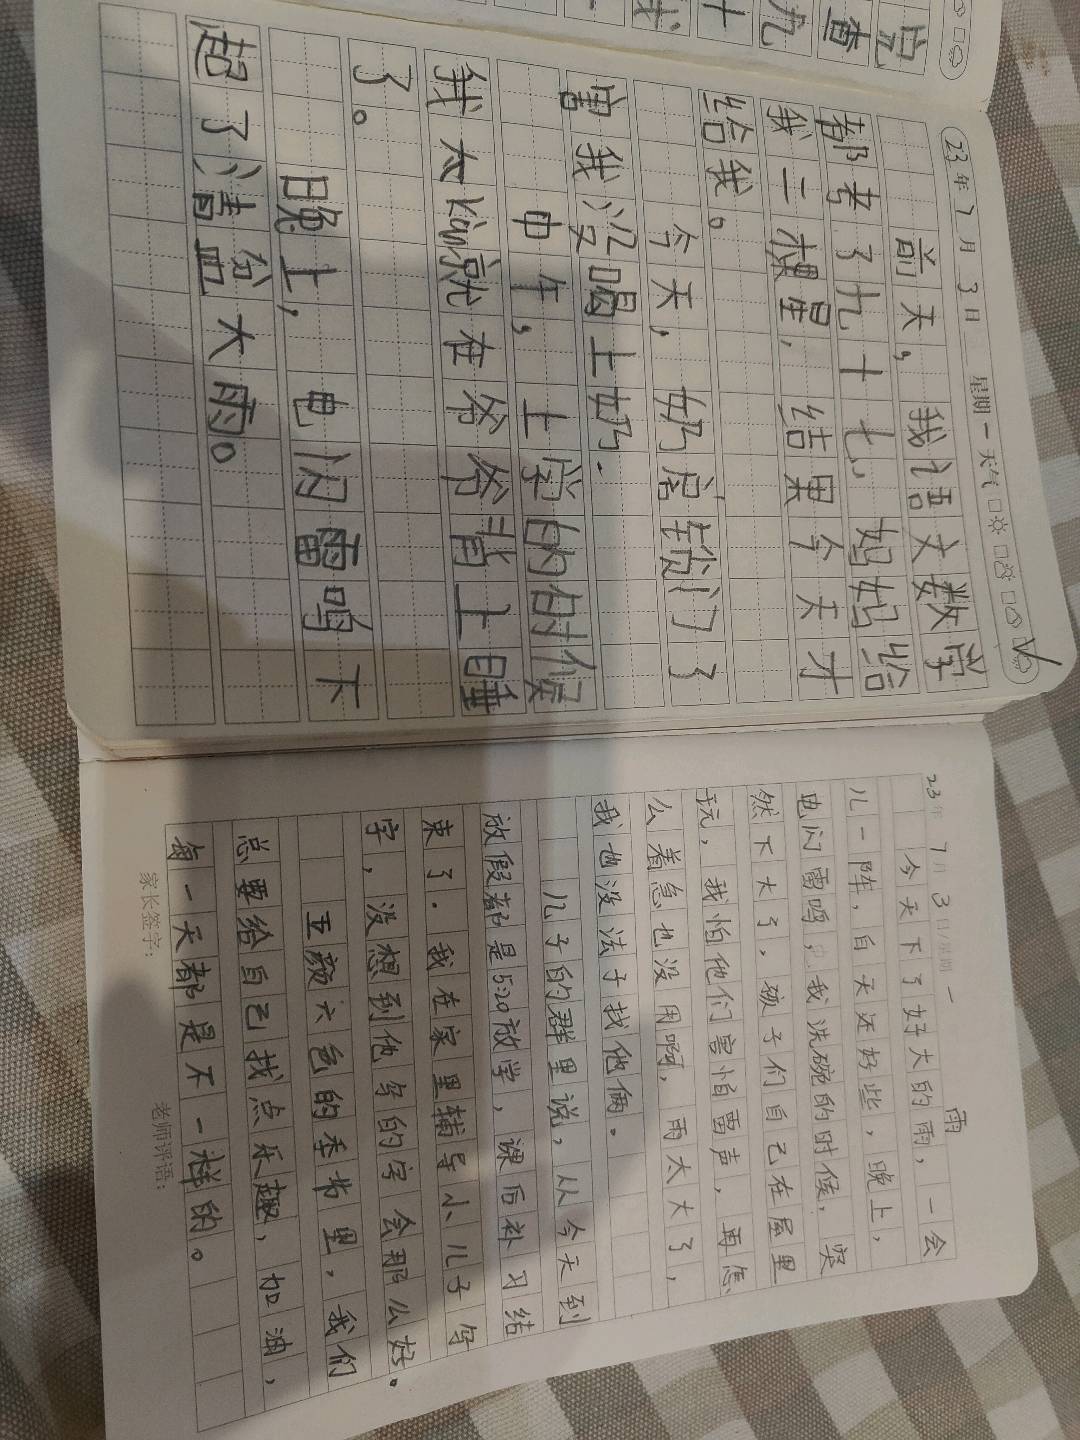 23年7月3日 星期一 天气
前天，我语文数学
都考了九十七，妈妈给
我二棵星，结果今天才
给我。
今天，奶店锁门了
害我没喝上奶.
中午，上学的时候
我太kùn就在爷爷背上睡
了。
晚上，电闪雷鸣下
起了倾盆大雨。
23年7月3日/星期一
雨
今天下了好大的雨，一会
儿一阵，白天还好些，晚上，
电闪雷鸣，我洗碗的时候，突
然下大了，孩子们自己在屋里
玩，我怕他们害怕雷声，再怎
么着急也没用啊，雨太大了，
我也没法子找他俩。
儿子的群里说，从今天到
放假都是520放学，课后补习结
束了.我在家里辅导小儿子写
字，没想到他写的字会那么好.
五颜六色的季节里，我们
总要给自己找点乐趣，加油，
每一天都是不一样的。
家长签字：
老师评语：